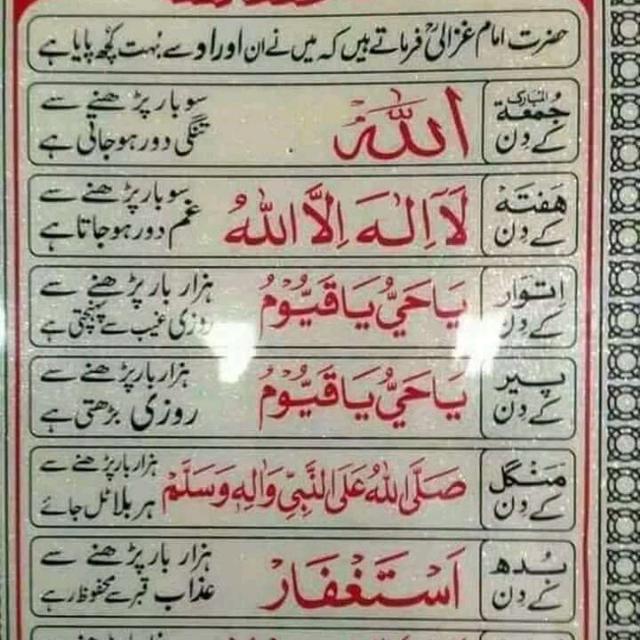 حضرت امام غزالیؒ فرماتے ہیں کہ میں نے ان اوراد سے بہت کچھ پایا ہے
جُمعۃ المبارک
کے دن
اَللّٰہُ
سو بار پڑھنے سے
تنگی دور ہو جاتی ہے
ھَفتَہ
کے دن
لَآ اِلٰہَ اِلَّا اللّٰہُ
سو بار پڑھنے سے
غم دور ہو جاتا ہے
اِتوَار
کے دن
یَا حَیُّ یَا قَیُّوْمُ
ہزار بار پڑھنے سے
روزی غیب سے پہنچتی ہے
پِیر
کے دن
یَا حَیُّ یَا قَیُّوْمُ
ہزار بار پڑھنے سے
روزی بڑھتی ہے
مَنگل
کے دن
صَلَّی اللّٰہُ عَلَی النَّبِیِّ وَاٰلِہٖ وَسَلَّمْ
ہزار بار پڑھنے سے
ہر بلا ٹل جائے
بُدھ
کے دن
اَسْتَغْفَار
ہزار بار پڑھنے سے
عذاب قبر سے محفوظ رہے